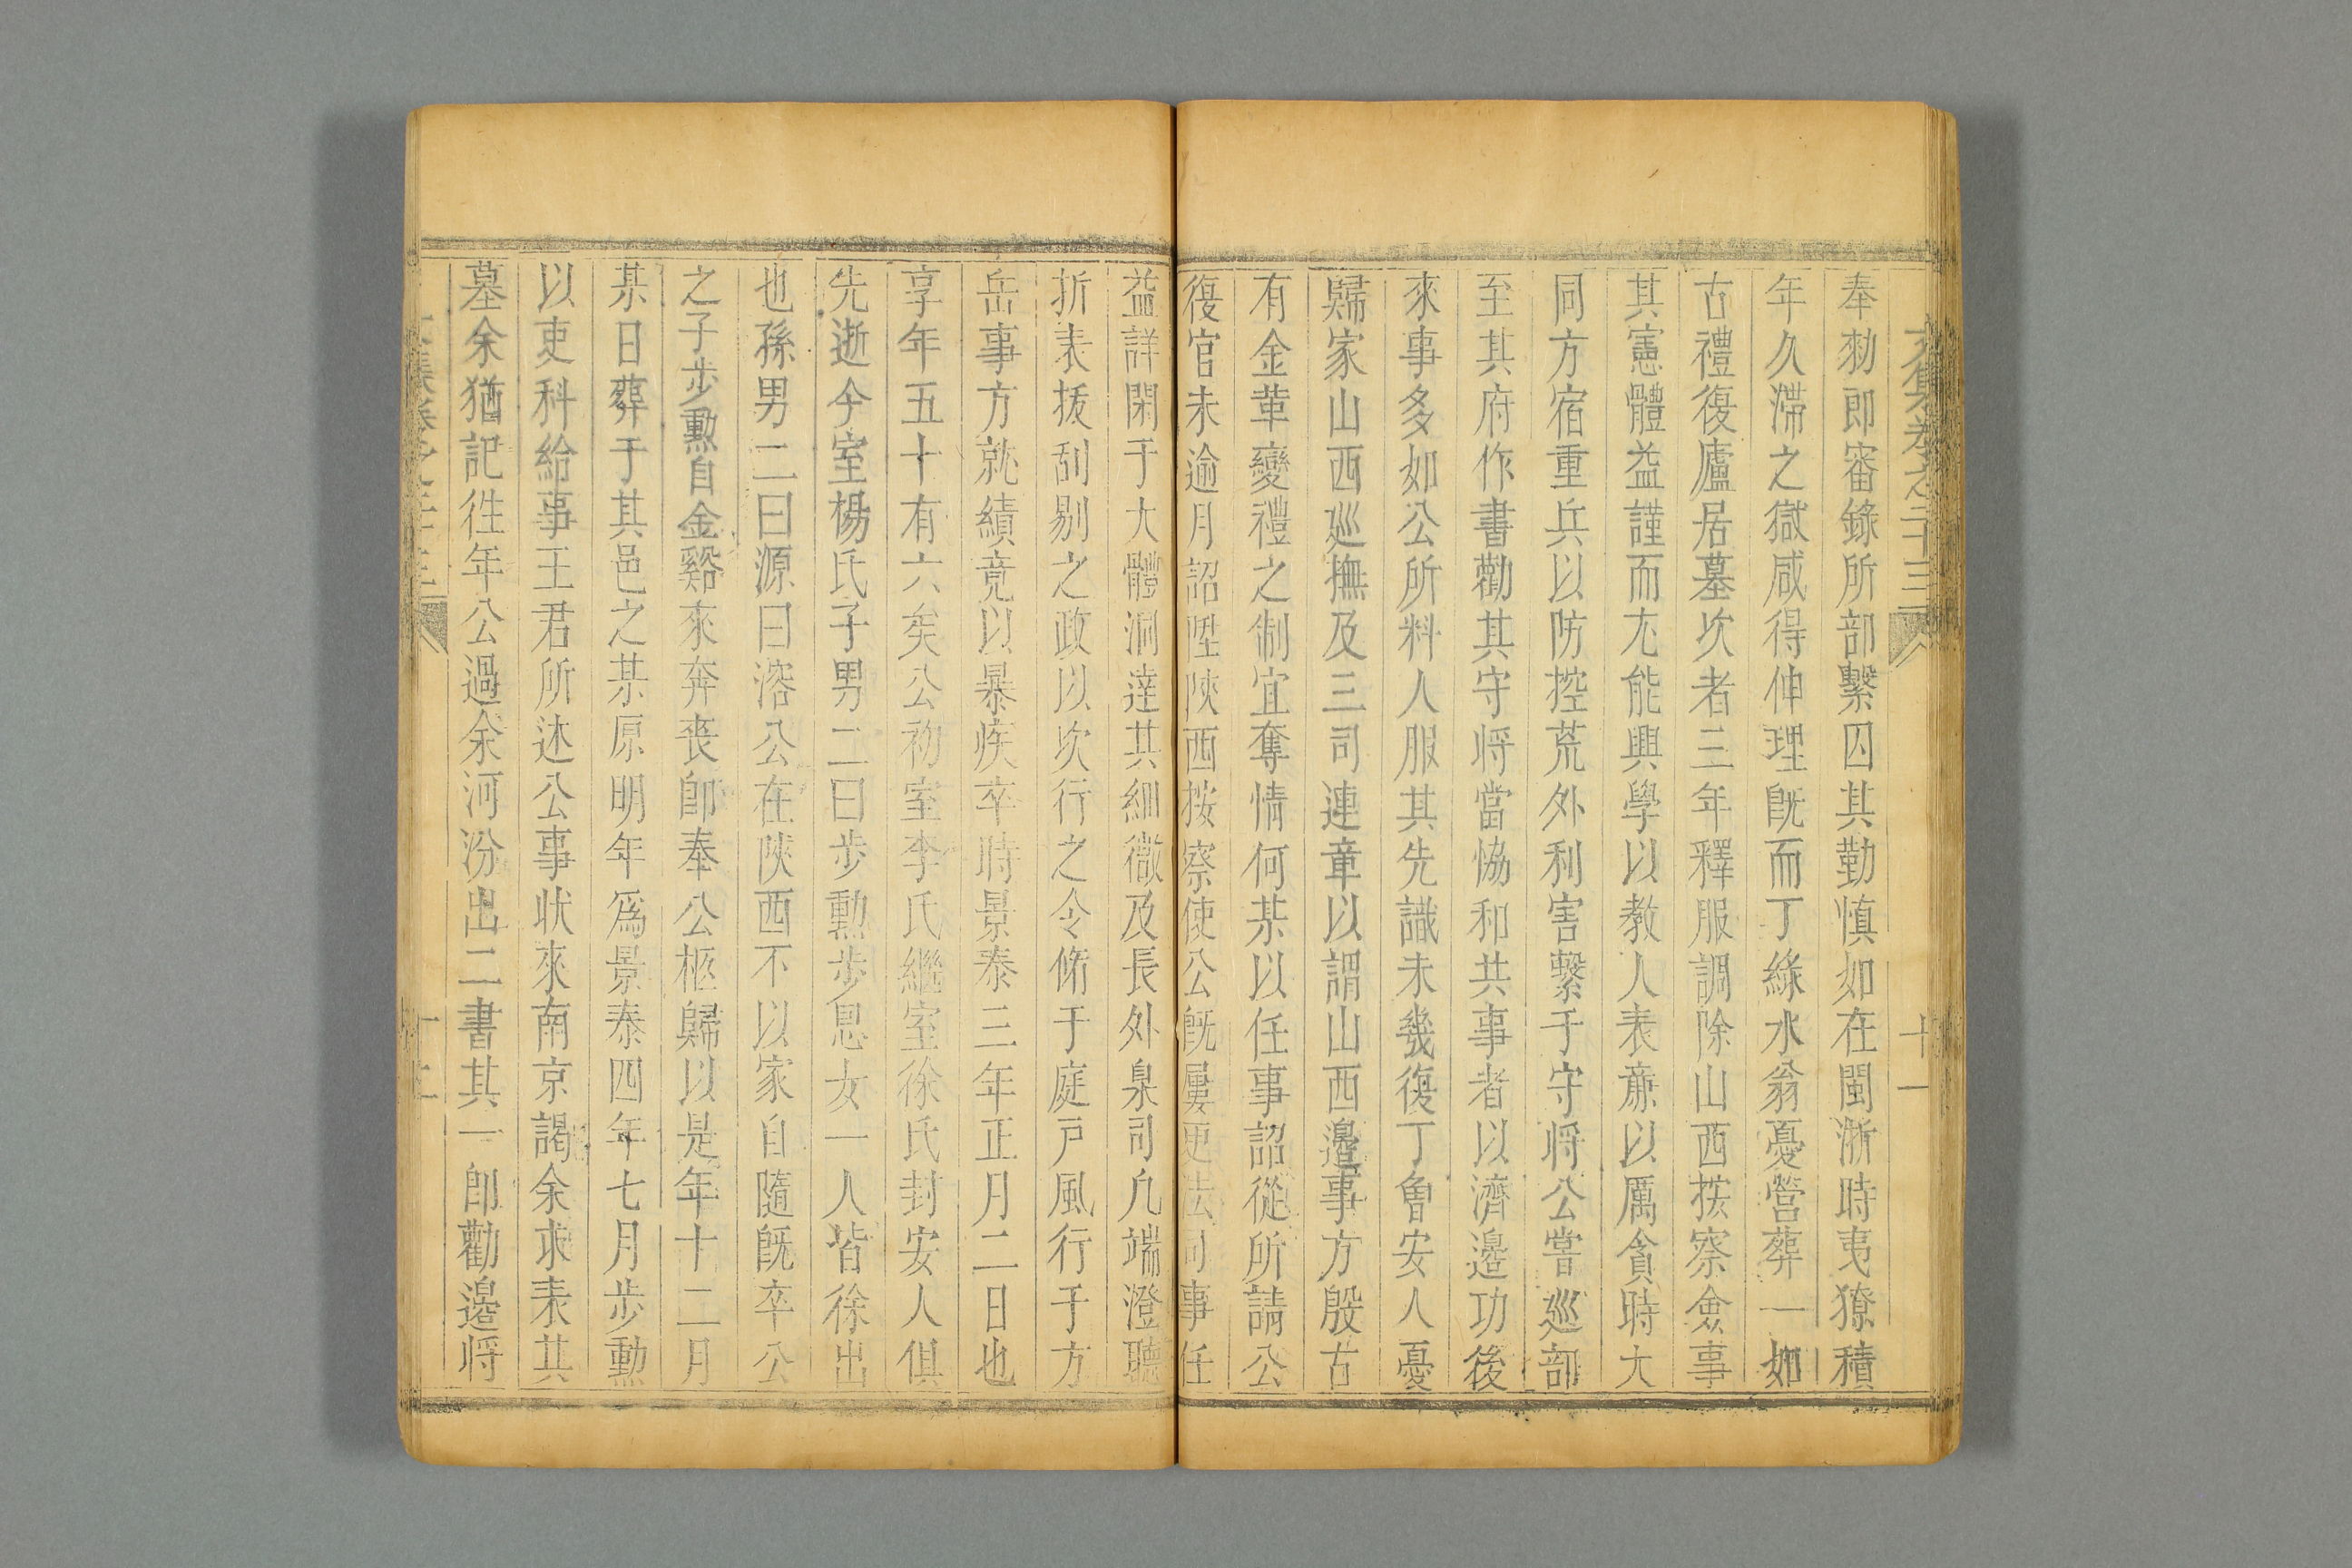 文集卷之二十三
十一
奉勑即審錄所部繫囚其勤慎如在閩浙時夷獠積
年久滯之獄咸得伸理旣而丁綠水翁憂營葬一如
古禮復廬居墓次者三年釋服調除山西按察僉事
其憲體益謹而尤能興學以教人表亷以厲貪時大
同方宿重兵以防控荒外利害繫于守將公嘗巡部
至其府作書勸其守將當恊和共事者以濟邊功後
來事多如公所料人服其先識未幾復丁魯安人憂
歸家山西巡撫及三司連章以謂山西邊事方殷古
有金革變禮之制宜奪情何某以任事詔從所請公
復官未逾月詔陞陝西按察使公旣屢更法司事任
益詳閑于大體洞達其細微及長外臬司凢端澄聽
折表拔刮剔之政以次行之令脩于庭戸風行于方
岳事方就績竟以暴疾卒時景泰三年正月二日也
享年五十有六矣公初室李氏繼室徐氏封安人俱
先逝今室楊氏子男二曰步勲步恩女一人皆徐出
也孫男二曰源曰溶公在陝西不以家自隨旣卒公
之子步勲自金谿來奔喪卽奉公柩歸以是年十二月
某日葬于其邑之某原明年爲景泰四年七月步勲
以吏科給事王君所述公事狀來南京謁余求表其
墓余猶記徃年公過余河汾出二書其一卽勸邊將
集卷之二十三
十二